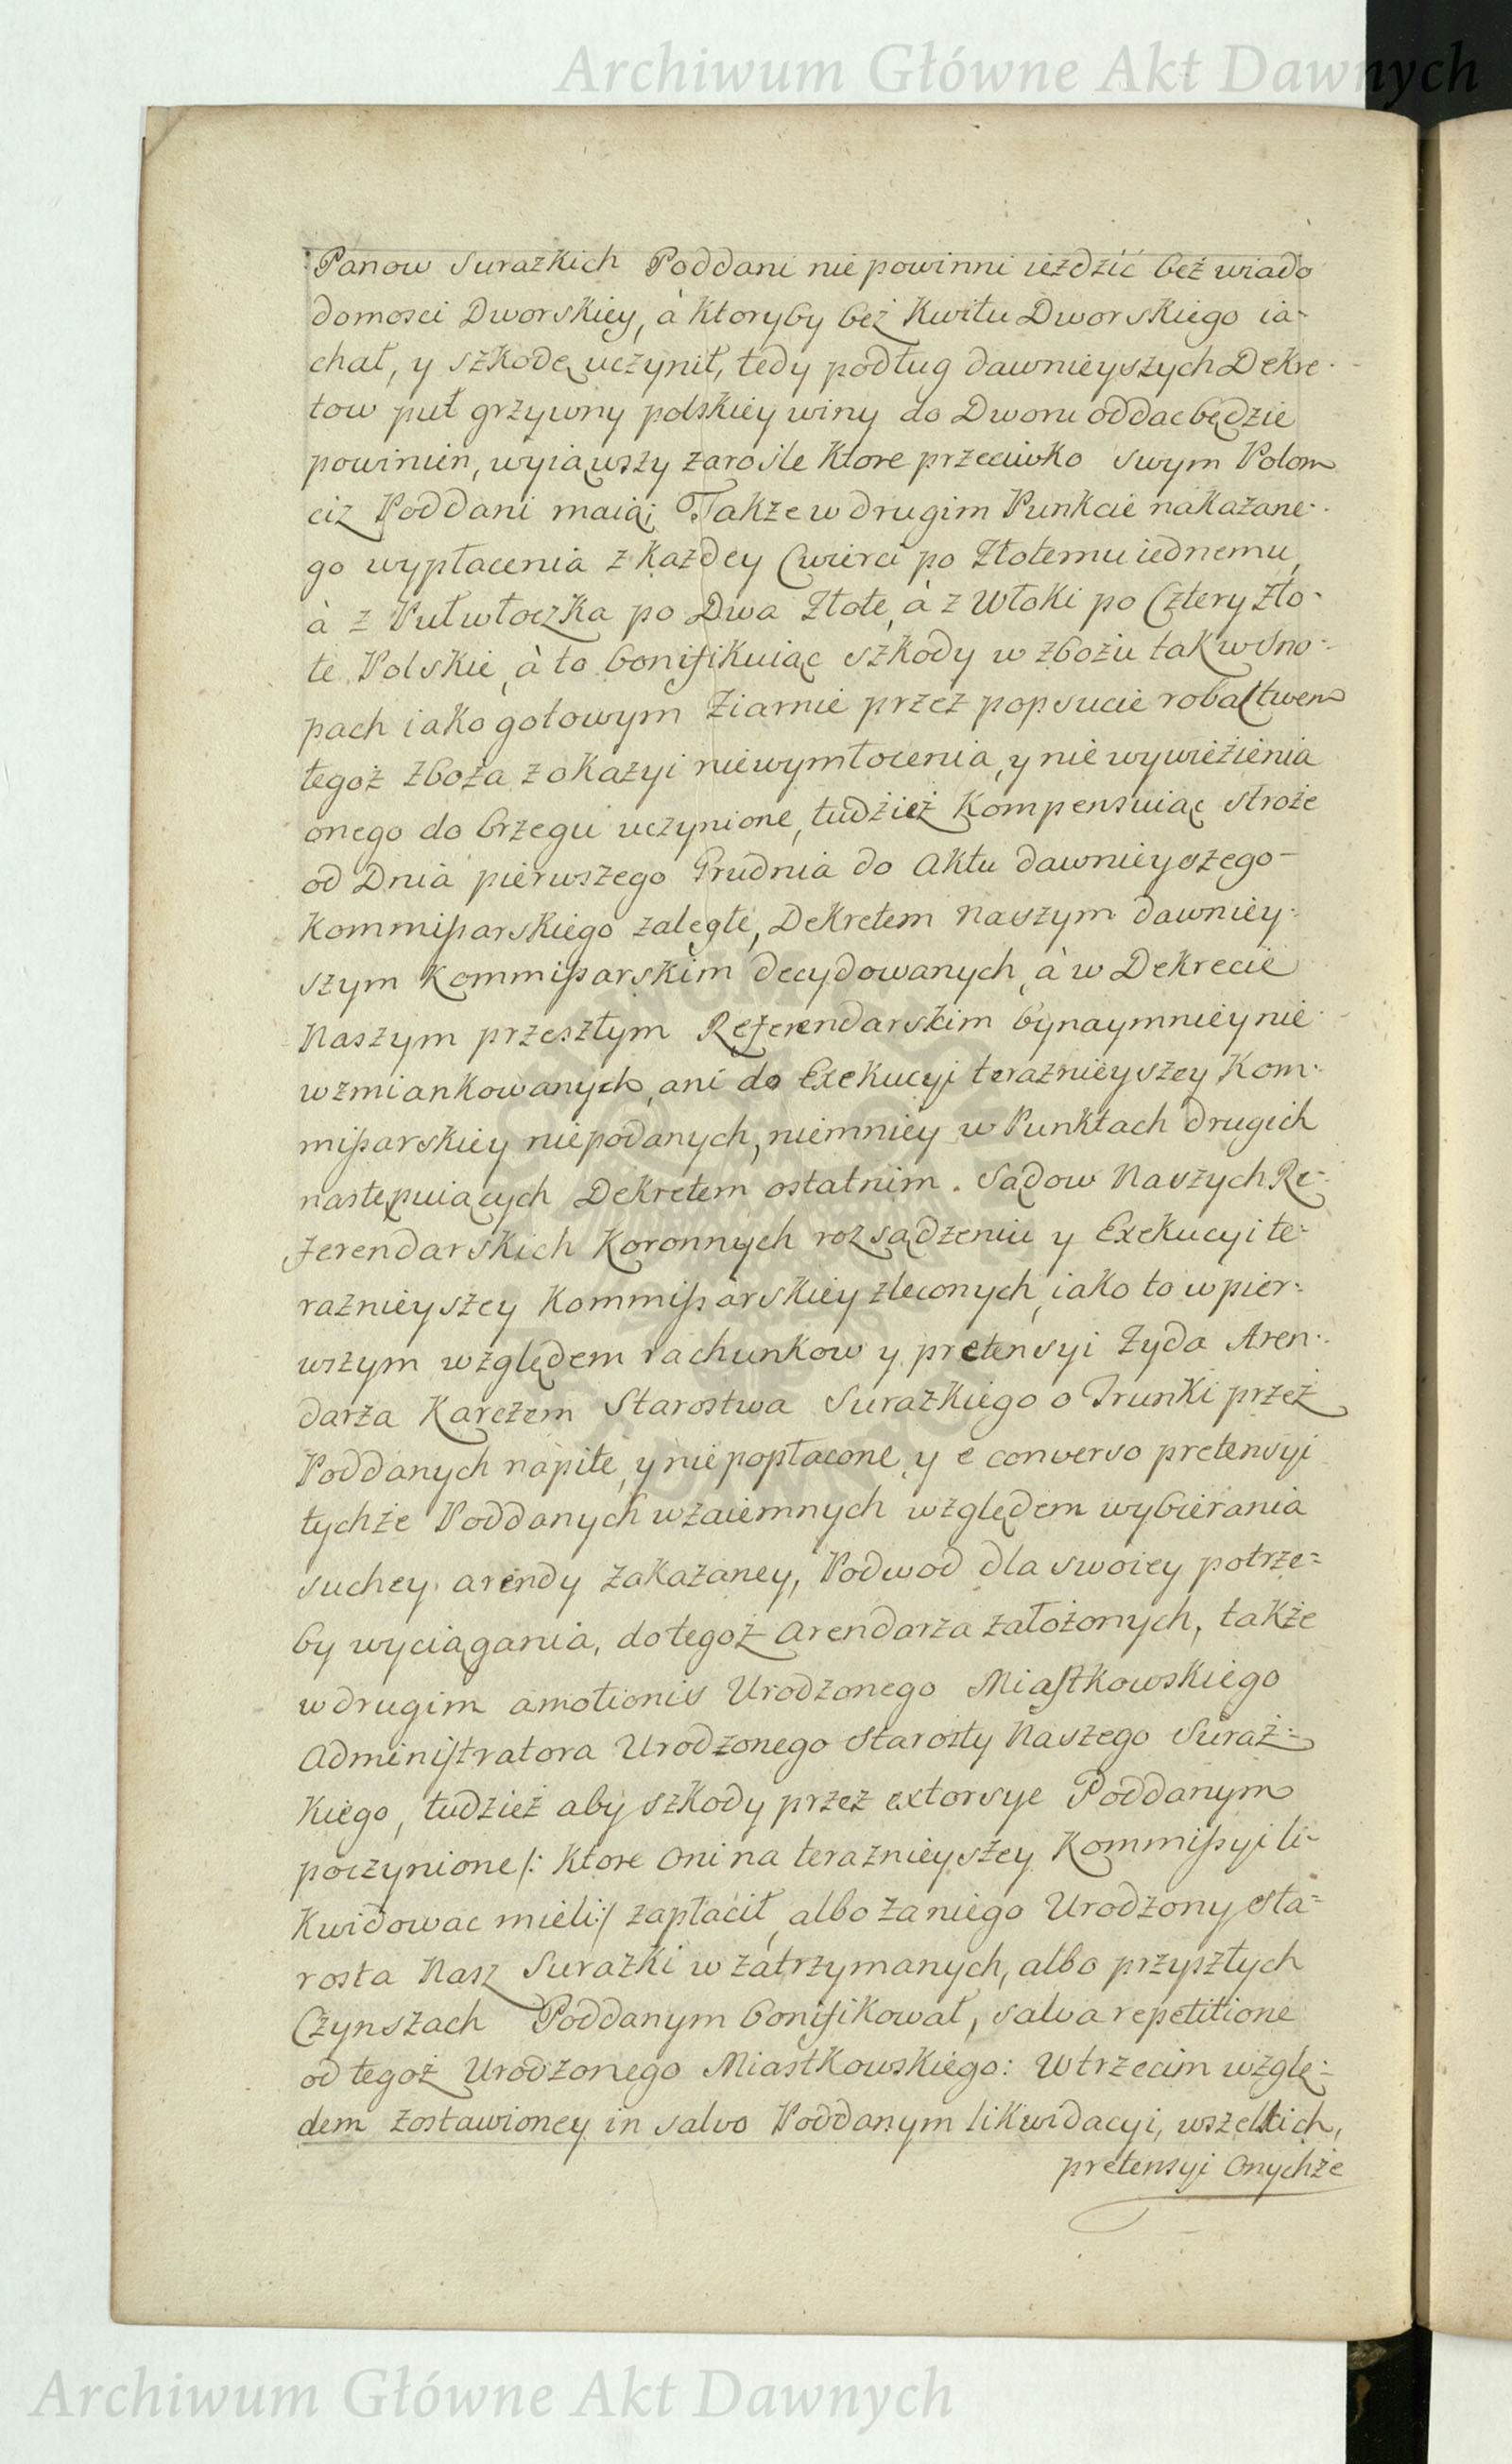 Archiwum Główne Akt Dawnych
Panow Surazkich Poddani nie powinni ieździć bez wiado
domosci Dworskiey, à ktoryby bez Kwitu Dworskiego ia-
chał, y szkodę uczynił, tedy podług dawnieyszych Dekre-
tow puł grzywny polskiey winy do Dworu oddac będzie
powinien, wyiąwszy zarośle ktore przeciwko swym Polom
ciz Poddani maią; Także w drugim Punkcie nakazane-
go wypłacenia z każdey Cwierci po Złotemu iednemu,
à z Pułwłoczka po Dwa Złote, à z Włoki po Cztery Zło-
te Polskie, à to bonifikuiąc szkody w zbożu tak w Sno-
pach iako gotowym Ziarnie przez popsucie robactwem
tegoż zboża z okazyi niewymłocenia, y nie wywieżienia
onego do brzegu uczynione, tudżież kompensuiąc stroże
od Dnia pierwszego Grudnia do Aktu dawnieyszego
Kommissarskiego zaległe, Dekretem naszym dawniey-
szym Kommissarskim decydowanych, à w Dekrecie
Naszym przeszłym Referendarskim bynaymniey nie
wzmiankowanych, ani do Exekucyi teraznieyszey Kom-
missarskiey niepodanych, niemniey w Punktach drugich
następuiących Dekretem ostatnim. Sądow Naszych Re-
ferendarskich Koronnych rozsądzeniu y Exekucyi te-
raznieyszey Kommissarskiey zleconych, iako to w pier-
wszym względem rachunkow y pretensyi Żyda Aren-
darza Karczem Starostwa Surazkiego o Trunki przez
Poddanych napite, y nie popłacone, y e converso pretensyi
tychże Poddanych wzaiemnych względem wybierania
suchey arendy zakazaney, Podwod dla swoiey potrze-
by wyciągania, do tegoż Arendarza załozonych, także
w drugim amotionis Urodzonego Miastkowskiego
Administratora Urodzonego Starosty Naszego Suraz-
kiego, tudzież aby szkody przez extorsye Poddanym
poczynione /: ktore oni na teraznieyszey Kommissyi li-
kwidowac mieli :/ zapłacił, albo za niego Urodzony Sta-
rosta Nasz Surazki w zatrzymanych, albo przyszłych
Czynszach Poddanym bonifikował, salva repetitione
od tegoż Urodzonego Miastkowskiego: W trzecim wzglę-
dem zostawioney in salvo Poddanym likwidacyi, wszelkich,
pretensyi Onychże
Archiwum Główne Akt Dawnych